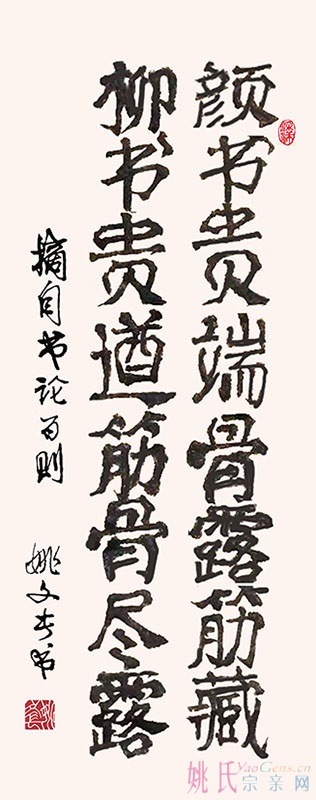 颜书贵端骨露筋藏
柳书贵遒筋骨尽露
摘自书论百则
姚文奎书
姚氏YaoGens.cn
宗亲网